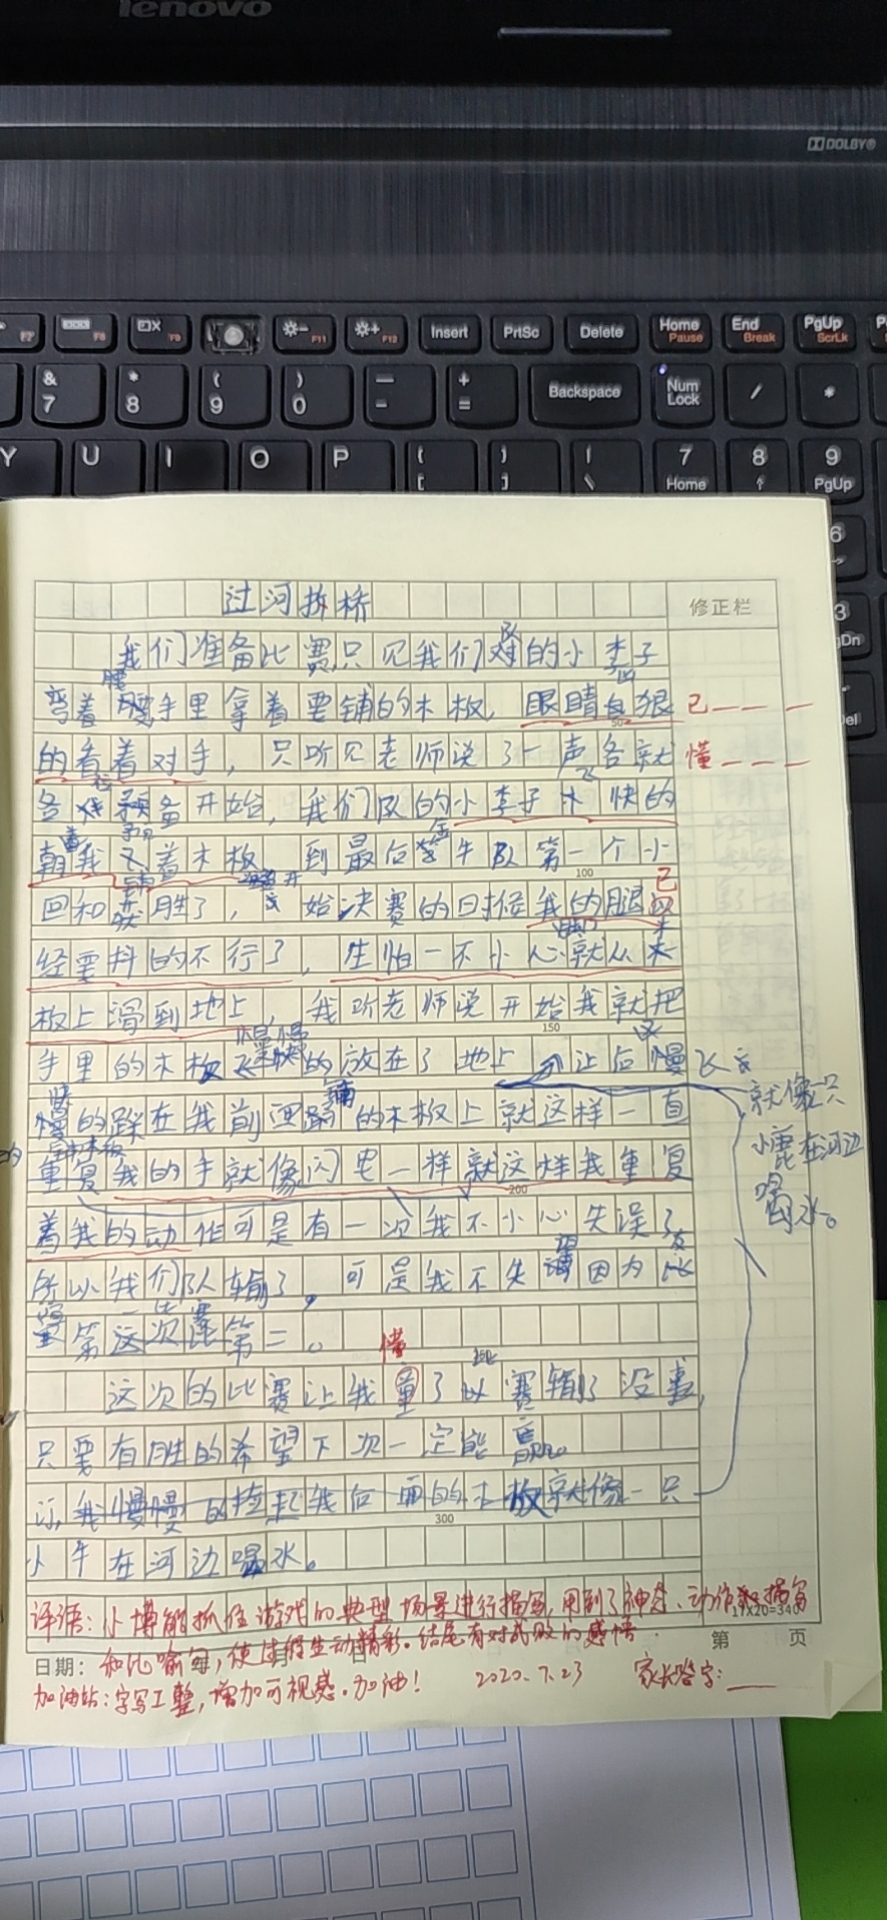 lenovo
DOLBY
F7 F8 F9 F11 F12 Insert PrtSc Delete Home Pause End Break PgUp ScrLk
& 7 * 8 ( 9 ) 0 — - + = Backspace Num Lock / *
Y U I O P { [ } ] | \ 7 Home 8 9 PgUp
6
3 PgDn
Del
过河拆桥
修正栏
我们准备比赛只见我们队的小李子
弯着腰手里拿着要铺的木板，眼睛凶狠
已
的看着对手，只听见老师说了一声各就
懂
各位预备开始，我们队的小李子飞快的
朝我
着木板
到最后
牛队第一个小
100
回和
胜了，
始决赛的时候我的腿已
经要抖的不行了，生怕一不小心就从木
板上滑到地上，我听老师说开始我就把
150
手里的木板
的放在了地上
让后慢
慢的踩在我前面铺的木板上就这样一直
就像一只
小鹿在河边
喝水。
重复我的手就像闪电一样就这样我重复
200
着我的动作可是有一次我不小心失误了
所以我们队输了，可是我不失望因为
第二。
懂
这次的比赛让我
了
赛输了没事，
只要有胜的希望下次一定能赢。
我慢慢的捡起我后面的木板就像一只
300
小牛在河边喝水。
评语：小博能抓住游戏的典型场景进行描写，用到了神态、动作描写
17×20=340
和比喻句，使过程生动精彩。结尾有对成败的感悟
第 页
日期：
加油站：字写工整，增加可视感。加油！ 2020.7.23 家长签字：